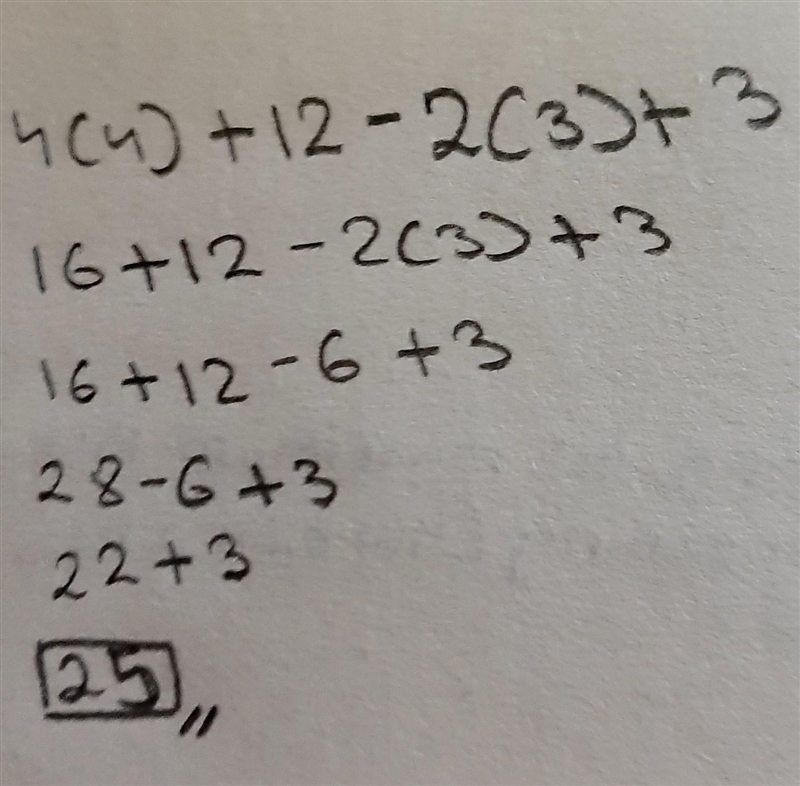 4(4) + 12 - 2(3) + 3
16 + 12 - 2(3) + 3
16 + 12 - 6 + 3
28 - 6 + 3
22 + 3
25 "